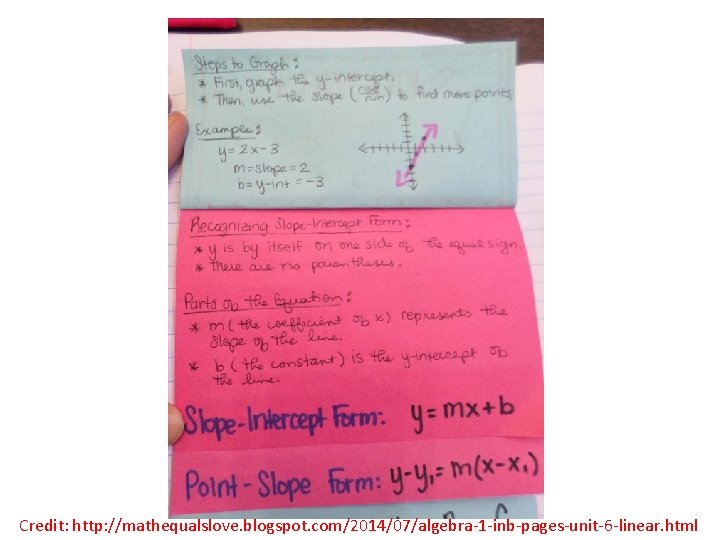 Steps to Graph:
* First, graph the y-intercept.
* Then, use the slope (rise/run) to find more points.
Example:
y=2x-3
m=slope=2
b=y-int=-3
Recognizing Slope-Intercept Form:
* y is by itself on one side of the equal sign.
* There are no parentheses.
Parts of the Equation:
* m (the coefficient of x) represents the
slope of the line.
* b (the constant) is the y-intercept of
the line.
Slope-Intercept Form: y=mx+b
Point-Slope Form: y-y₁=m(x-x₁)
Credit: http://mathequalslove.blogspot.com/2014/07/algebra-1-inb-pages-unit-6-linear.html